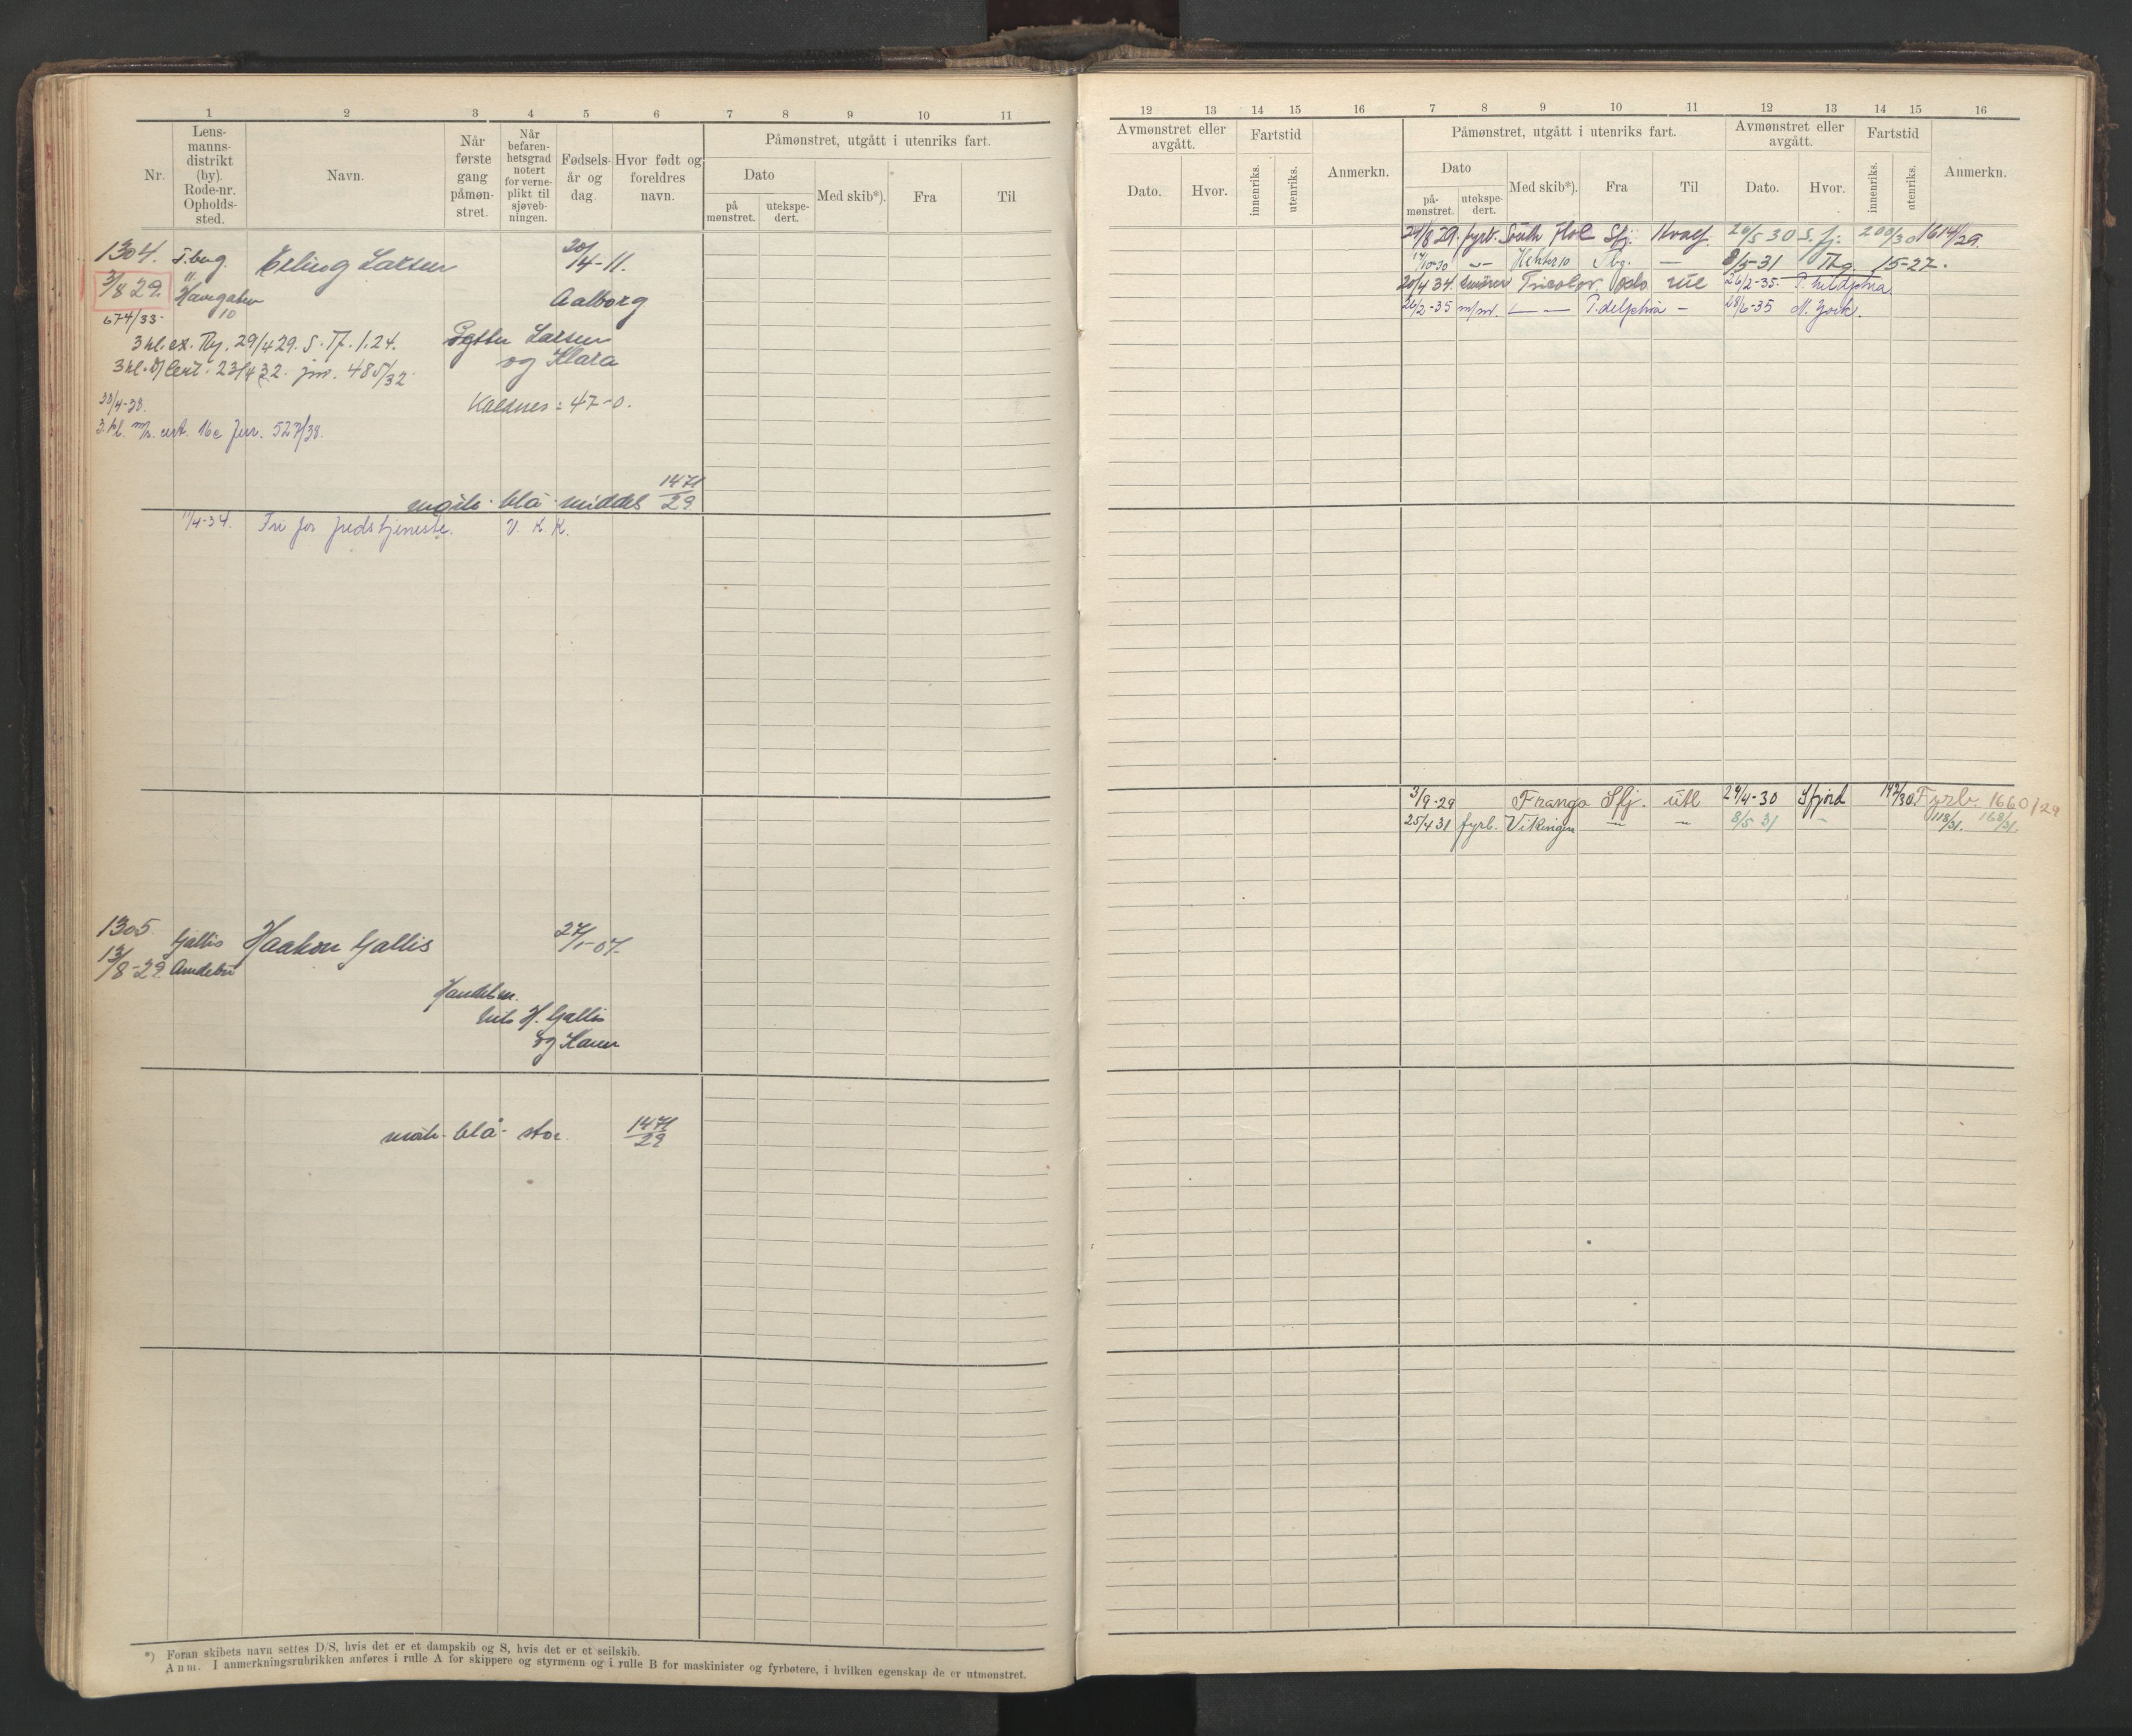 1 2 3 4 5 6 7 8 9 10 11
Nr.
Lens-
manns-
distrikt
(by).
Rode-nr.
Opholds-
sted.
Navn.
Når
første
gang
påmøn-
stret.
Når
befaren-
hetsgrad
notert
for verne-
plikt til
sjøveb-
ningen.
Fødsels-
år og
dag.
Hvor født og
foreldres
navn.
Påmønstret, utgått i utenriks fart.
Dato
på
mønstret.
utekspe-
dert.
Med skib*).
Fra
Til
1304. T.berg. Erling Larsen 20/4-11.
3/8 29. Havegaten Aalborg
10
674/33
3 kl. ex. Tbg. 29/4 29. S. 17. 1. 24. Larsen
3 kl. cert. 23/4 32. jnr. 485/32 og Klara
30/4-38. Kaldnes: 47-0.
3. kl. cert. Jnr. 527/38.
blå middels 1471/29
11/4-34. Fri for fredstjeneste. V. K. K.
1305 Gallis Haakon Gallis 27/1-07.
13/8-29 Andebu
H. Gallis
og Karen
blå - stor. 1471/29
*) Foran skibets navn settes D/S, hvis det er et dampskib og S, hvis det er et seilskib.
Anm. I anmerkningsrubrikken anføres i rulle A for skippere og styrmenn og i rulle B for maskinister og fyrbøtere, i hvilken egenskap de er utmønstret.
12 13 14 15 16 7 8 9 10 11 12 13 14 15 16
Avmønstret eller
avgått.
Dato.
Hvor.
Fartstid
innenriks.
utenriks.
Anmerkn.
Påmønstret, utgått i utenriks fart.
Dato
på-
mønstret.
utekspe-
dert.
Med skib*).
Fra
Til
Avmønstret eller
avgått.
Dato.
Hvor.
Fartstid
innenriks.
utenriks.
Anmerkn.
24/8 29. fyrb. South Pole Sfj. Hvalf. 26/5 30 S.fj. 200/30 1614/29.
17/10-30 —"— Hektor 10 Tbg. — 8/5-31 Tbg. 15-27.
20/4 34. Tricolor Oslo utl 26/2-35.
26/2-35 m/m. — — P.delphia — 28/6-35 N. York.
3/9-29 Frango Sfj. utl 29/4-30 Sfjord 192/30 Fyrb. 1660/29
25/4 31 fyrb. Vikingen — — 8/5 31 — 118/31. 168/31.